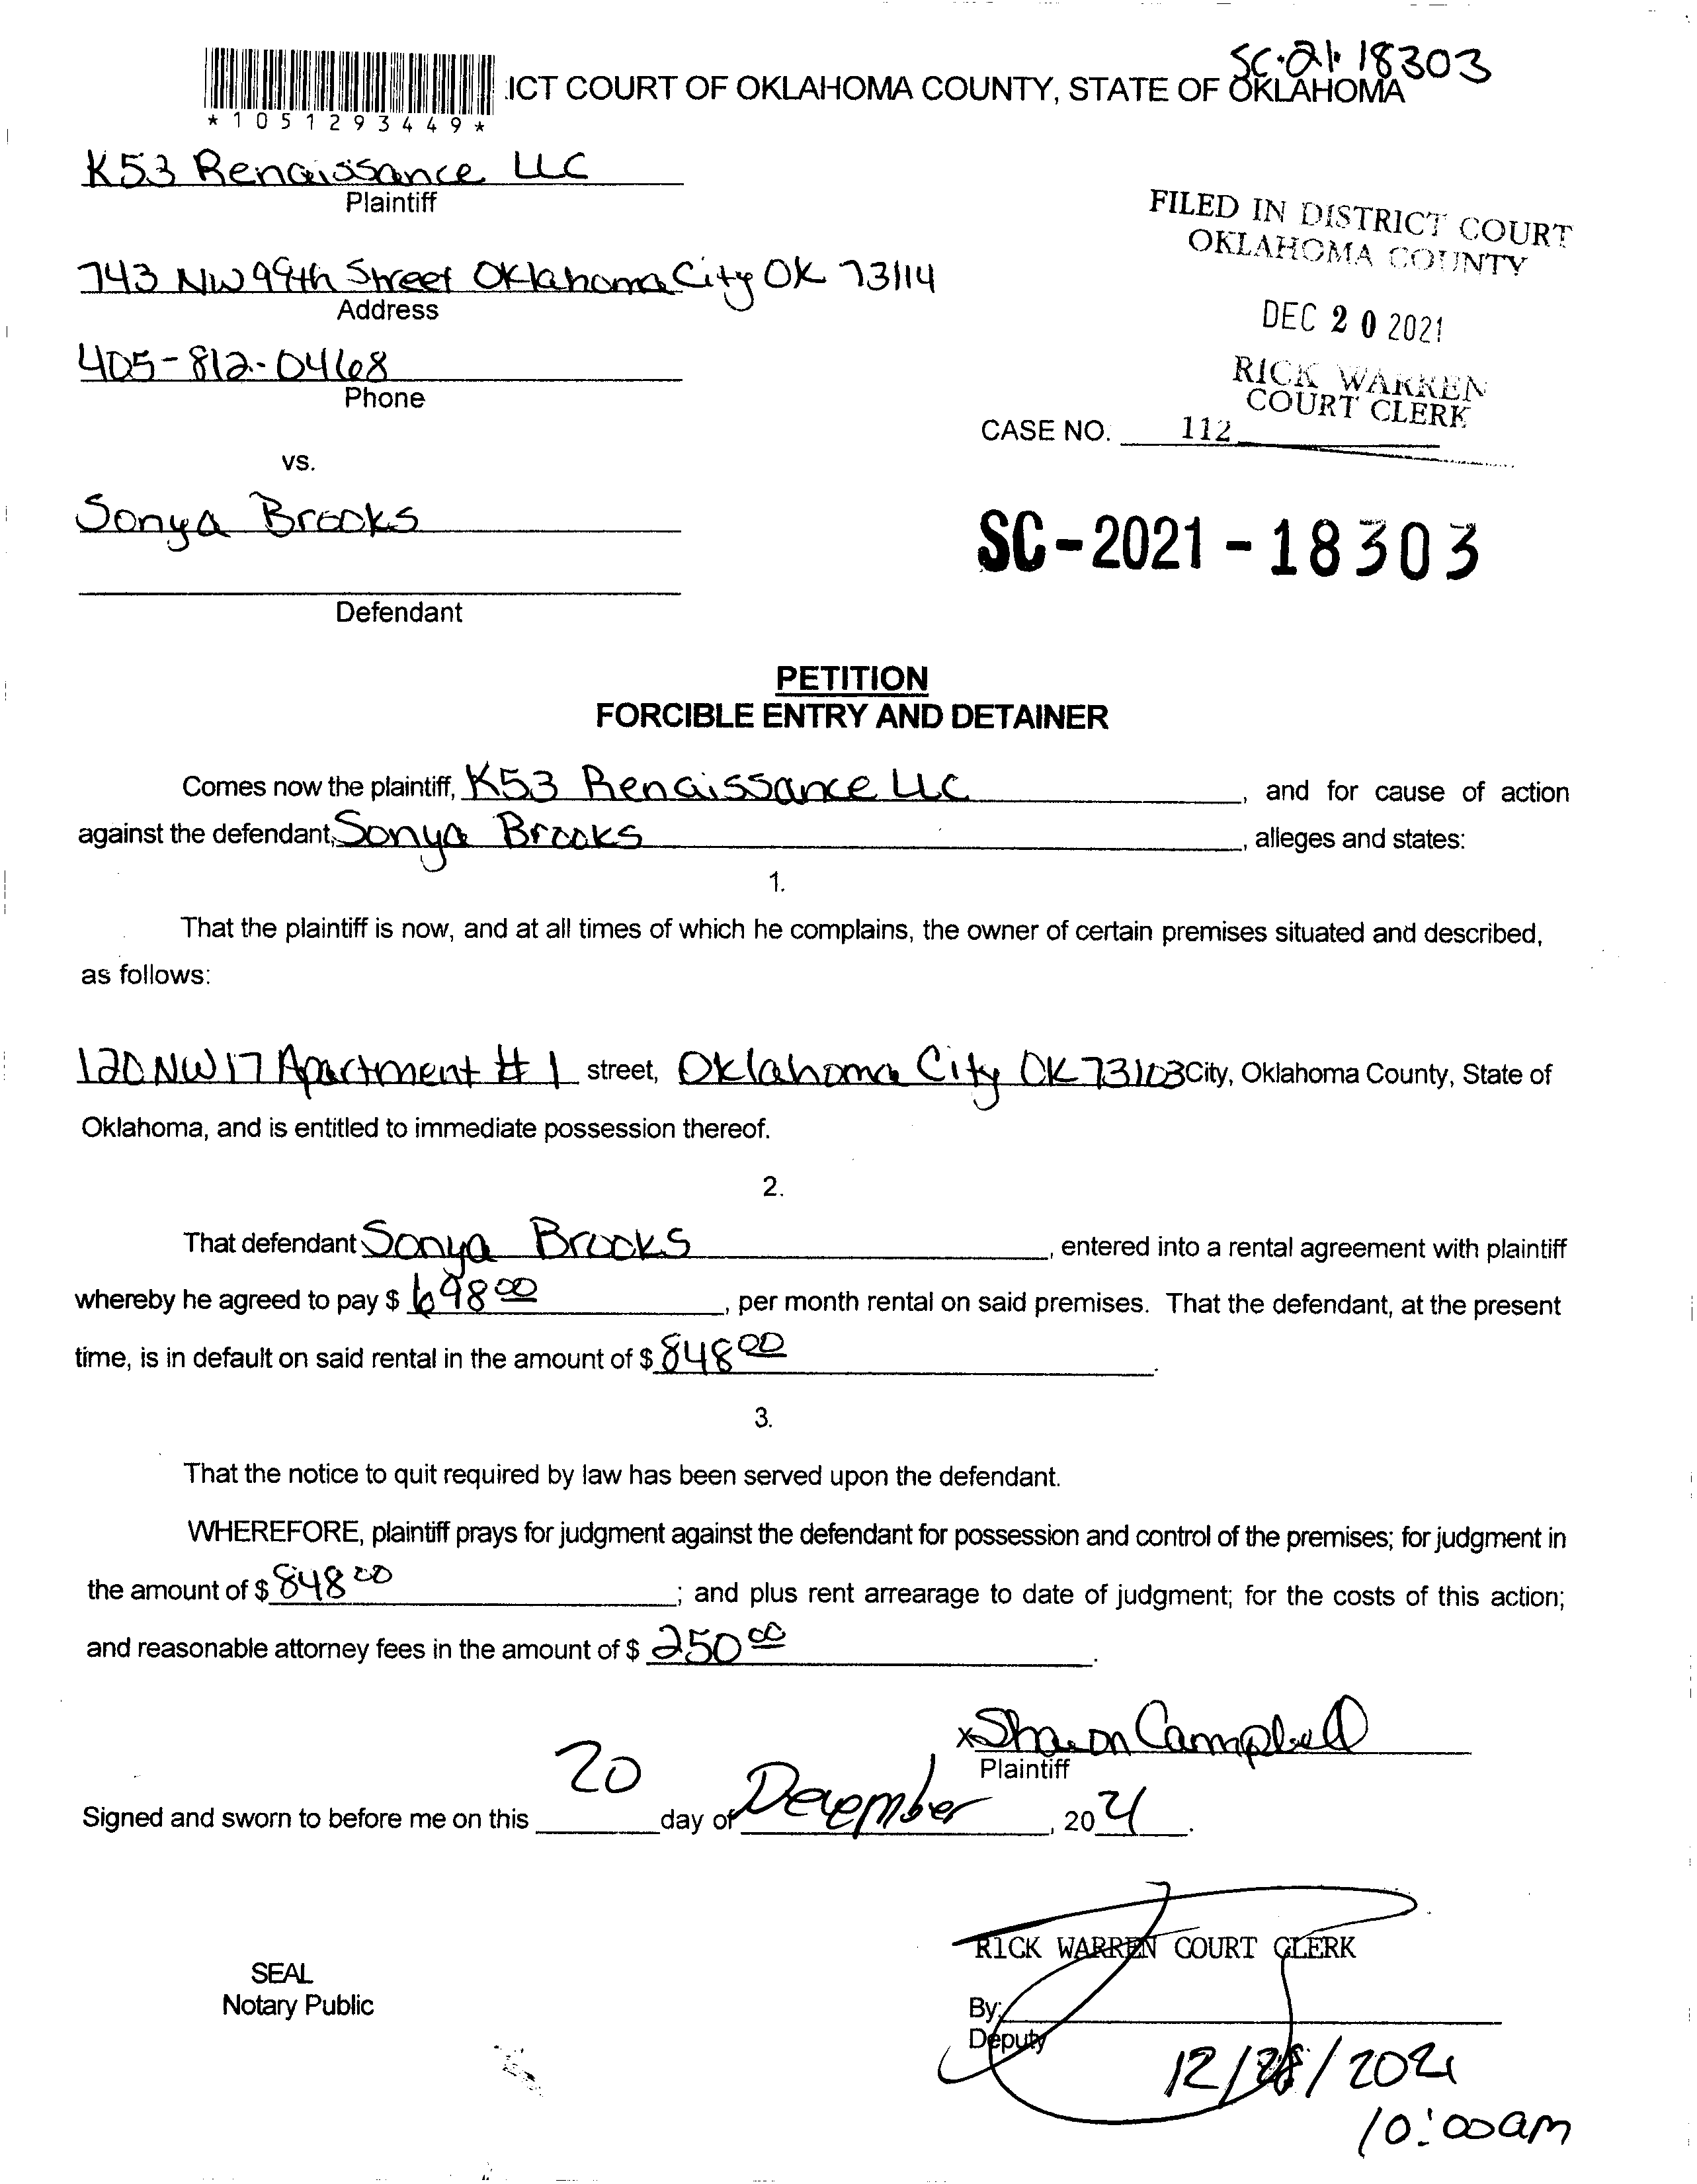 SC-21-18303
.ICT COURT OF OKLAHOMA COUNTY, STATE OF OKLAHOMA
*1051293449*
K53 Renaissance LLC
Plaintiff
FILED IN DISTRICT COURT
OKLAHOMA COUNTY
743 NW 99th Street Oklahoma City OK 73114
Address
DEC 20 2021
405-812-0468
Phone
RICK WARREN
COURT CLERK
CASE NO. 112
vs.
Sonya Brooks
SC-2021-18303
Defendant
PETITION
FORCIBLE ENTRY AND DETAINER
Comes now the plaintiff, K53 Renaissance LLC, and for cause of action
against the defendant, Sonya Brooks, alleges and states:
1.
That the plaintiff is now, and at all times of which he complains, the owner of certain premises situated and described,
as follows:
120 NW 17 Apartment # 1 street, Oklahoma City OK 73103 City, Oklahoma County, State of
Oklahoma, and is entitled to immediate possession thereof.
2.
That defendant Sonya Brooks, entered into a rental agreement with plaintiff
whereby he agreed to pay $ 698 00, per month rental on said premises. That the defendant, at the present
time, is in default on said rental in the amount of $ 848 00.
3.
That the notice to quit required by law has been served upon the defendant.
WHEREFORE, plaintiff prays for judgment against the defendant for possession and control of the premises; for judgment in
the amount of $ 848 00; and plus rent arrearage to date of judgment; for the costs of this action;
and reasonable attorney fees in the amount of $ 250 00.
x Sharon Campbell
Plaintiff
Signed and sworn to before me on this 20 day of December, 2021.
RICK WARREN COURT CLERK
SEAL
Notary Public
By:
Deputy
12/28/2021
10:00am